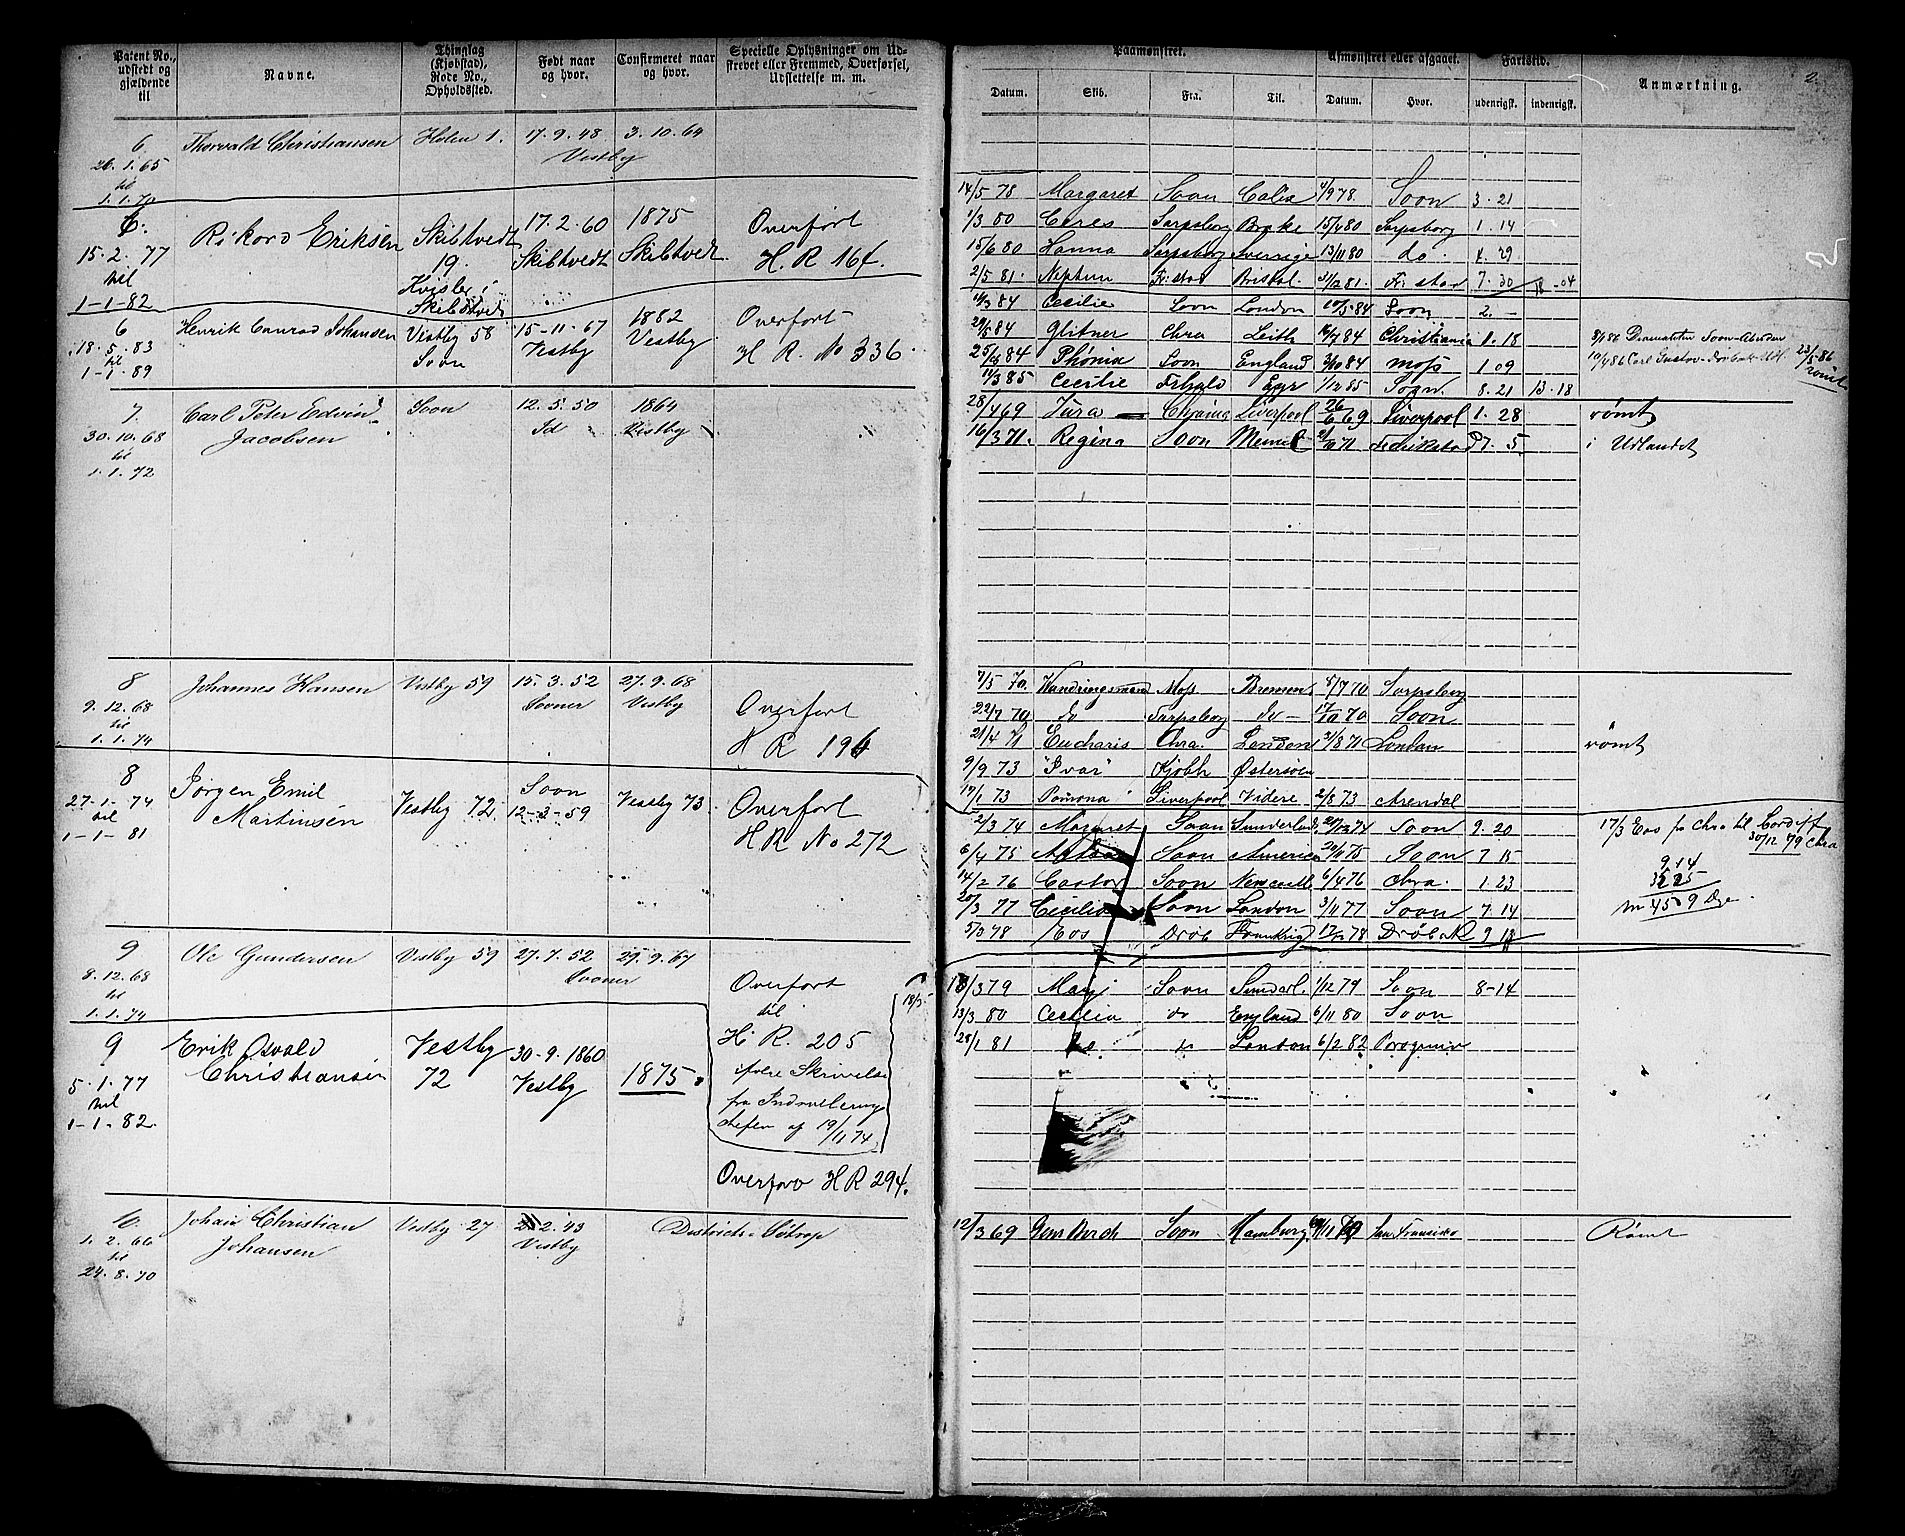 Patent No., udstedt og gjældende til
Navne.
Thinglag (Kjøbstad), Rode No., Opholdssted.
Født naar og hvor.
Confirmeret naar og hvor.
Specielle Oplysninger om Udskrevet eller Fremmed, Overførsel, Udslettelse m. m.
6
26.1.65
til
1.1.70
Thorvald Christiansen
Holen 1.
17.9.48
Vestby
3.10.64
6.
15.2.77
til
1-1-82
Rikord Eriksen
Skibtvedt
19
Skibtvedt
17.2.60
Skibtvedt
1875
Skibtvedt
Overført
H.R 164.
6
18.5.83
til
1-1-89
Henrik Conrad Johansen
Vestby 58
Soon
15-11-67
Vestby
1882
Vestby
Overført
H R. No 336.
7.
30.10.68
til
1.1.72
Carl Peter Edvin
Jacobsen
Soon
12.5.50
Id
1864
Vestby
8
9.12.68
til
1.1.74
Johannes Hansen
Vestby 59
15.3.52
Sooner
27.9.68
Vestby
Overført
H R 196
8
27-1-74
til
1-1-81
Jørgen Emil
Martinsen
Vestby 72
Soon
12-3-59
Vestby 73
Overført
HR No 272
9
8.12.68
til
1.1.74
Ole Gundersen
Vestby 59
27.7.52
Sooner
29.9.67
Overført
til
H. R. 205
ifølge Skrivelse
fra Indrullerings
chefen af 19/11 74
18/3
9
5.1.77
til
1-1-82.
Erik Osvald
Christiansen
Vestby
72
30-9.1860
Vestby
1875.
Overført H R 294.
10.
1.2.66
til
24.8.70
Johan Christian
Johansen
Vestby 27
2.2.43
Vestby
Paamønstret.
Afmønstret eller afgaaet.
Fartstid.
Datum. Skib. Fra. Til. Datum. Hvor. udenrigsk. indenrigsk. Anmærkning.
2.
2
14/5 78 Margaret Soon Calix 4/9 78. Soon 3.21
1/3 80 Ceres Sarpsborg Brake 15/4 80 Sarpsborg 1.14
15/6 80 Hanna Sarpsborg Sverrige 13/11 80 do. 4.29
2/5 81. Neptun Fr.stad Bristol. 31/12 81. Fr. stad 7.30 18-04
14/3 84 Cecilie Soon London 10/5 84 Soon 2. -
29/5 84 Glitner Chra Leith 16/7 84 Christiania 1.18
25/8 84 Phønix Soon England 3/10 84 Moss 1 09
14/3 85 Cecilie Frhald 1/12 85 Sogn. 8.21 13.18
10/4 86 Carl Gustav-Drøbak-Udl. 23/5-86
rømt
28/4 69 Jura Liverpool 26/6 69 Liverpool 1.28 rømt
16/3 71. Regina Soon Memel 2/10 71 Fredrikstad 7.5. i Udlandet
7/5 70. Wandringsmand Moss Bremen 4/7 70 Sarpsborg
22/7 70 do Sarpsborg do - 17/10 70 Soon
21/4 71 Eucharis Chra. London 31/8 71 London rømt
9/9 73 "Ivar" Kjøbh Østersøen
19/1 73 Pomona Liverpool Videre 2/8 73 Arendal
2/3 74 Margaret Soon Sunderland 74 Soon 9.20 17/3 Eos fra Chra til Cardiff
30/12 79 Chra
6/4 75 Soon America 20/11 75 Soon 7.15
14/2 76 Castor Soon Newcastl 6/4 76 Chra. 1.23
20/3 77 Cecilia Soon London 3/11 77 Soon 7.14
5/3 78 Eos Drøb Frankrig 17/12 78 Drøbak 9 18
9 14
m 45 9 Dge.
18/3 79 Mary Soon Sunderl. 1/12 79 Soon 8-14
13/3 80 Cecilia do England 6/11 80 Soon
28/1 81 do. London 6/2 82
12/3 69 Soon Hamburg San Francisko Rømt